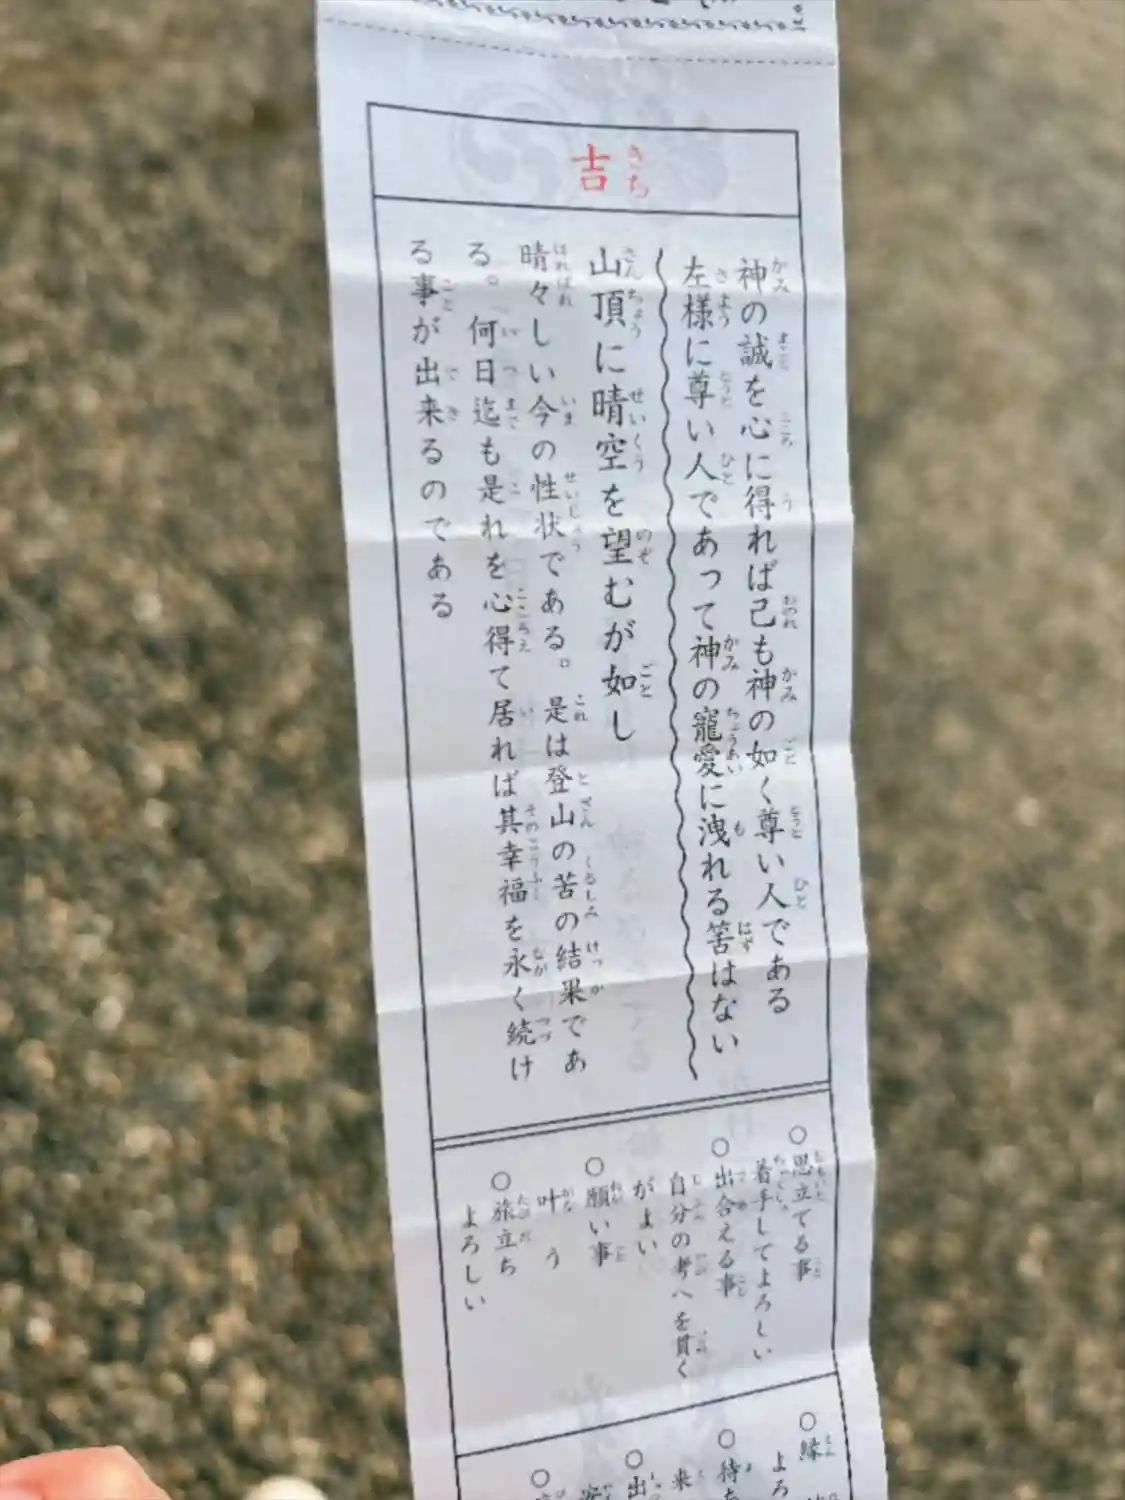 吉
神の誠を心に得れば己も神の如く尊い人である
左様に尊い人であって神の寵愛に洩れる筈はない
山頂に晴空を望むが如し
晴々しい今の性状である。是は登山の苦の結果であ
る。何日迄も是れを心得て居れば其幸福を永く続け
る事が出来るのである
○思立てる事
着手してよろしい
○出合える事
自分の考へを貫く
がよい
○願い事
叶う
○旅立ち
よろしい
○縁
よろ
○待
来
○出